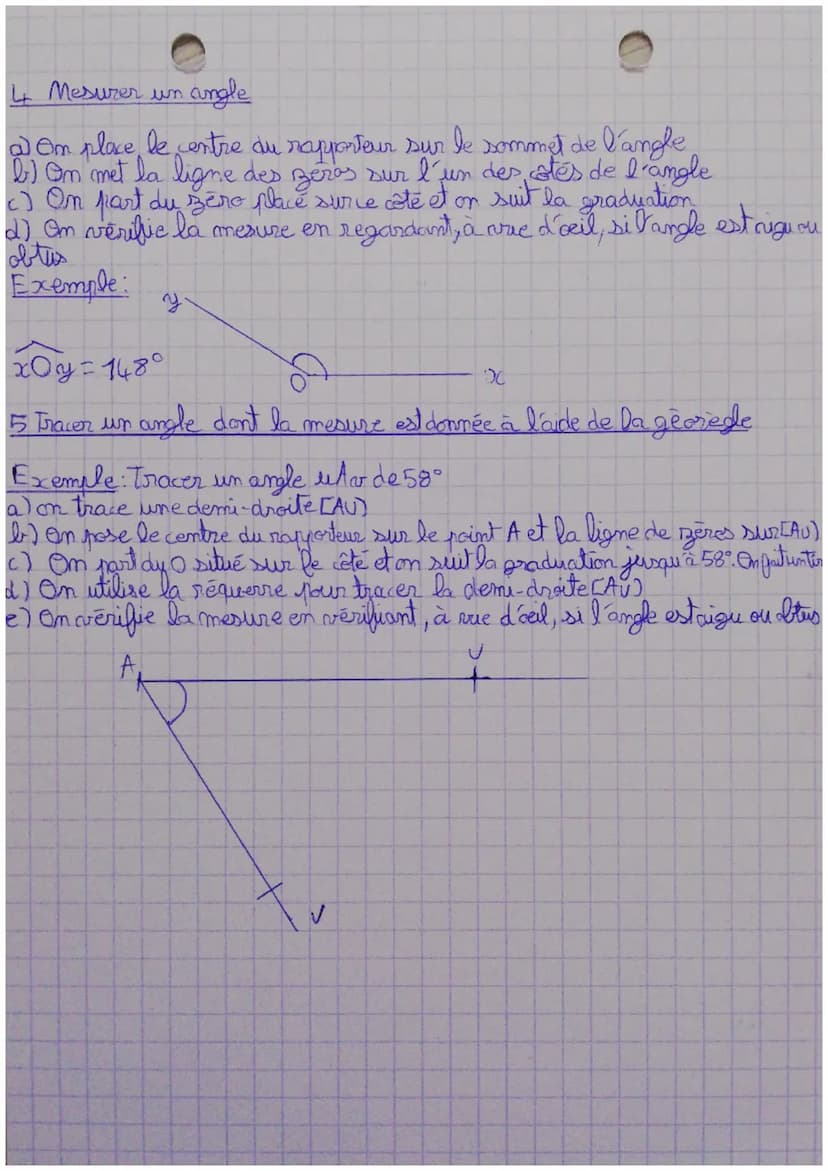 4 Mesurer un angle
a) On place le centre du rapporteur sur le sommet de l'angle
b) On met la ligne des zéros sur l'un des côtés de l'angle
c) On part du zéro placé sur ce côté et on suit la graduation
d) On vérifie la mesure en regardant, à vue d'œil, si l'angle est aigu ou
obtus
Exemple:
y
xOy = 148°
O
x
5 Tracer un angle dont la mesure est donnée à l'aide de la géorègle
Exemple: Tracer un angle uAv de 58°
a) on trace une demi-droite [AU)
b) On pose le centre du rapporteur sur le point A et la ligne de zéros sur [AU)
c) On part du O situé sur le côté et on suit la graduation jusqu'à 58°. On fait un
d) On utilise la réquerre pour tracer la demi-droite [AV)
e) On vérifie la mesure en vérifiant, à vue d'œil, si l'angle est aigu ou obtus
A
U
V